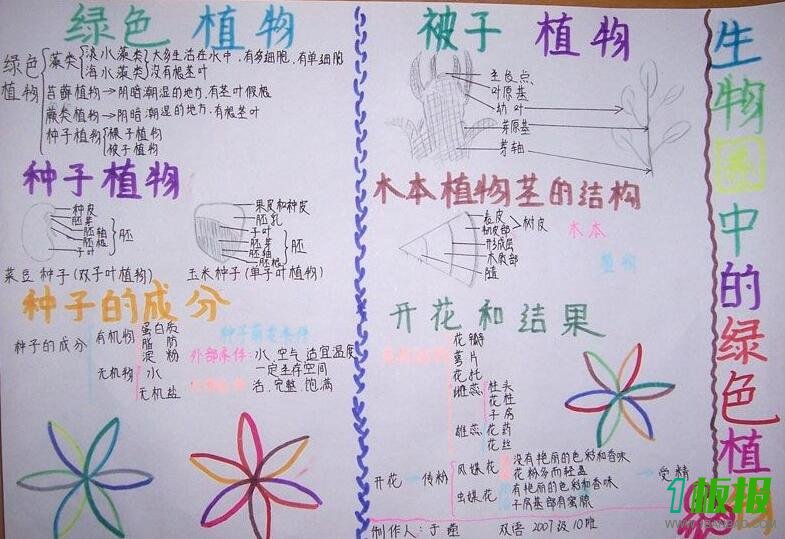 绿色 植物
绿色植物
藻类
淡水藻类
海水藻类
大多生活在水中,有多细胞,有单细胞
没有根茎叶
苔藓植物→阴暗潮湿的地方,有茎叶假根
蕨类植物→阴暗潮湿的地方,有根茎叶
种子植物
被子植物
被子植物
种子植物
种皮
胚芽
胚轴
胚根
子叶
胚
菜豆种子(双子叶植物)
果皮和种皮
胚乳
子叶
胚芽
胚轴
胚根
胚
玉米种子(单子叶植物)
种子的成分
种子的成分
有机物
蛋白质
脂肪
淀粉
无机物
水
无机盐
种子萌发条件
外部条件:水、空气、适宜温度
一定生存空间
活、完整、饱满
被子 植物
生长点
叶原基
幼叶
芽原基
芽轴
木本植物茎的结构
韧皮部
树皮
形成层
木质部
髓
木本
植物
开花和结果
花瓣
萼片
花托
雌蕊
柱头
花柱
子房
雄蕊
花药
花丝
开花→传粉
风媒花
没有艳丽的色彩和香味
花粉多而轻盈
虫媒花
有艳丽的色彩和香味
子房基部有蜜腺
→受精
制作人:于
双语 2007级10班
生物圈中的绿色植物
1板报